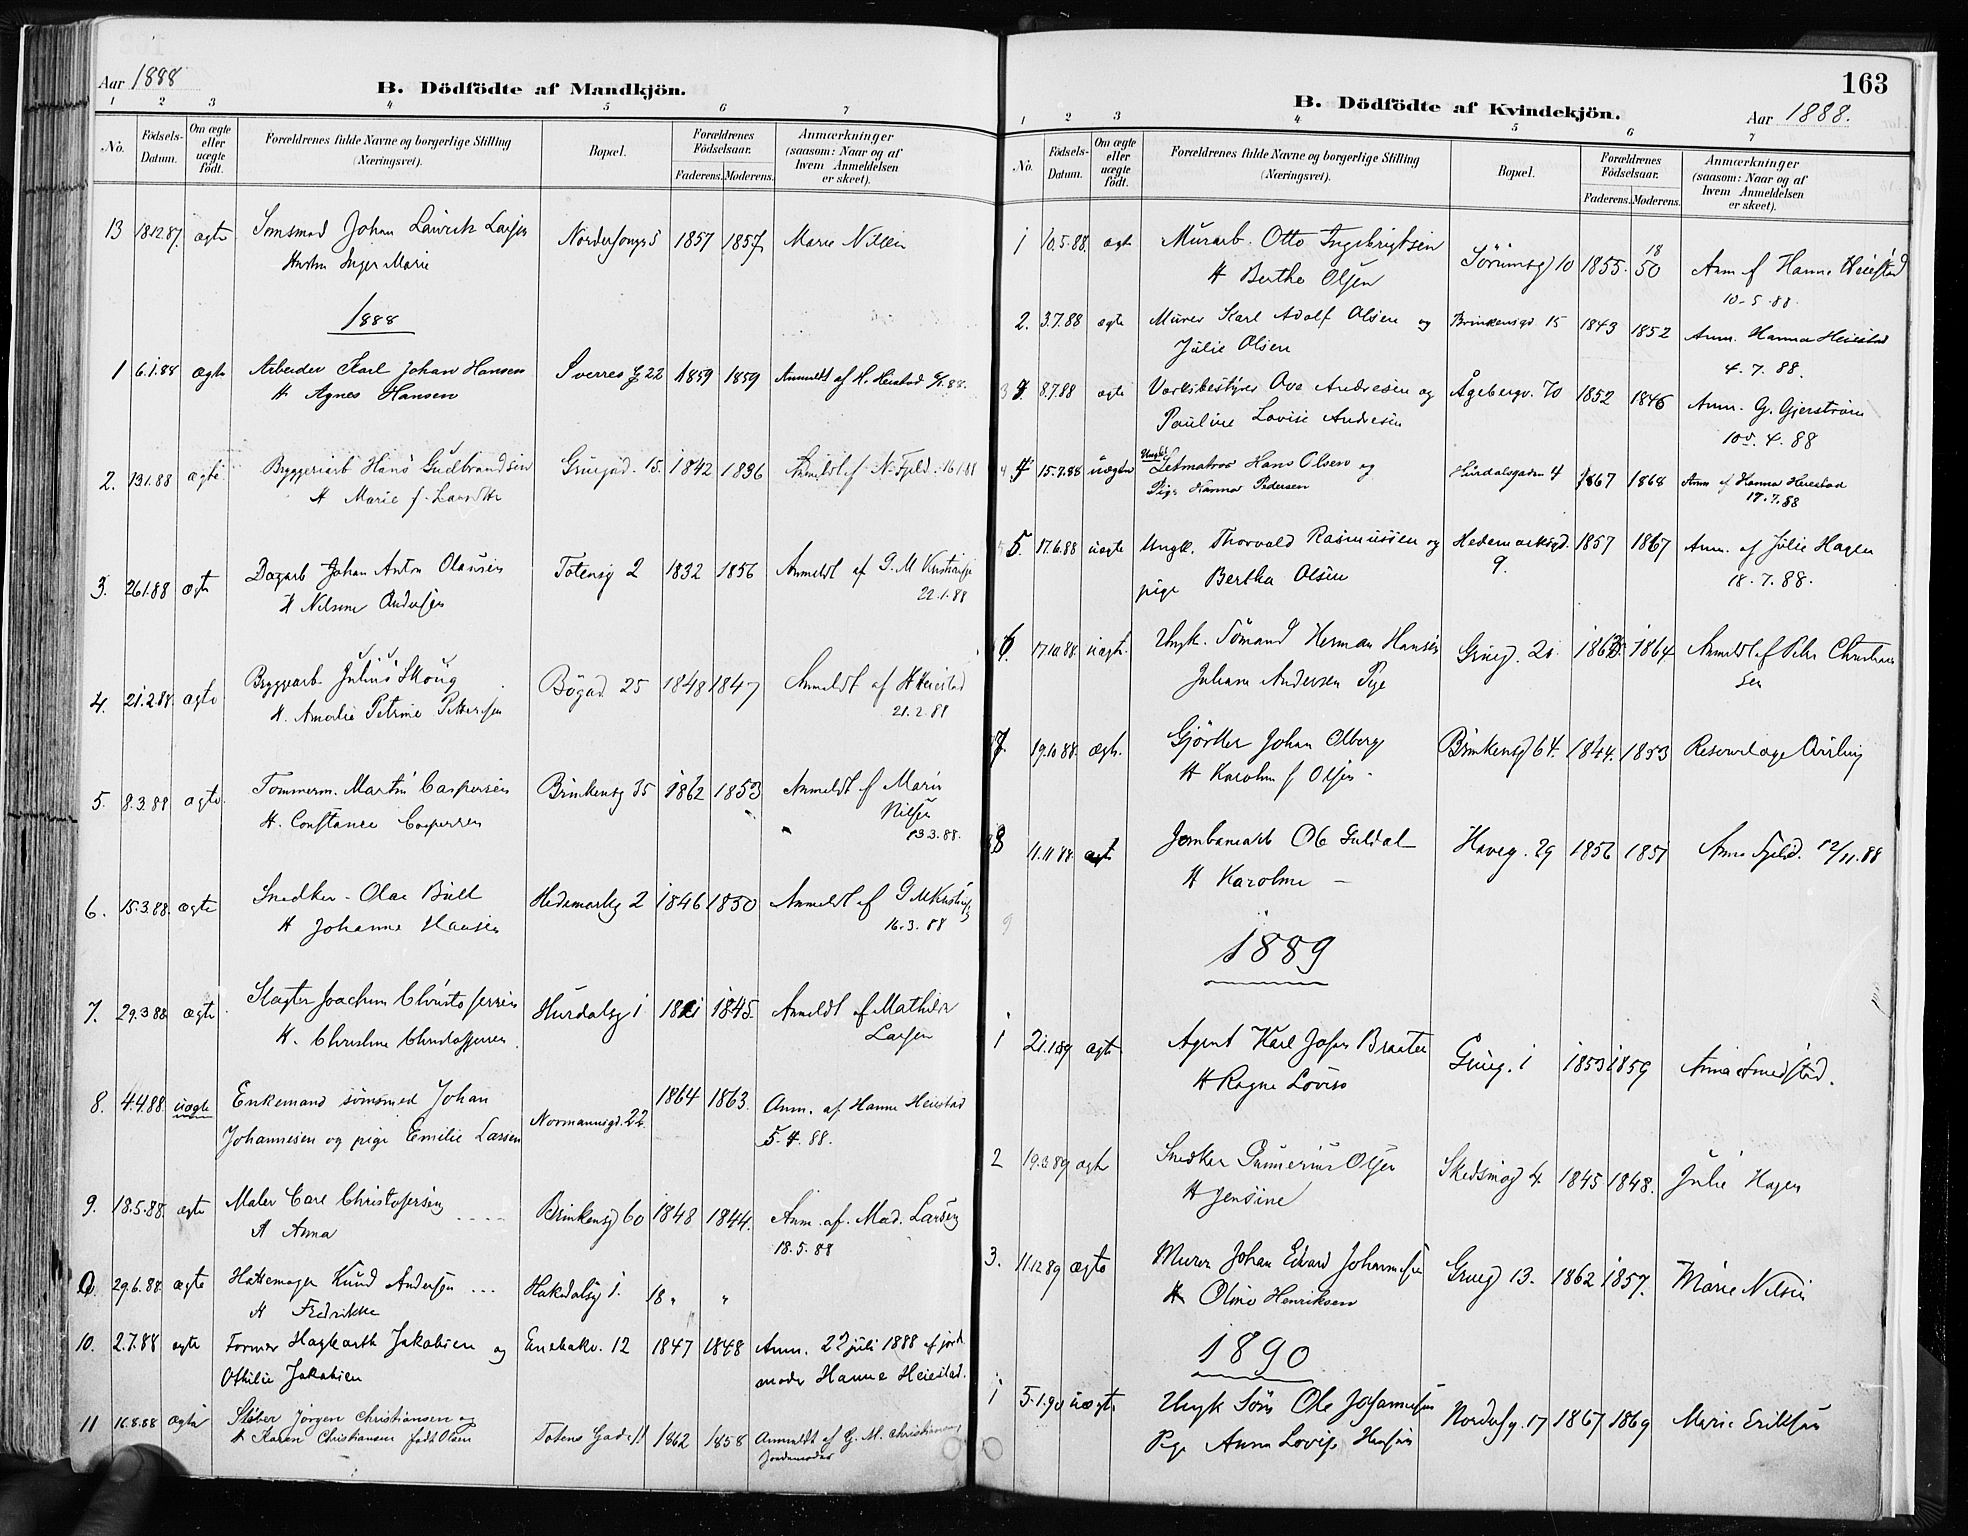 Aar 1888
B. Dödfödte af Mandkjön.
1 2 3 4 5 6 7
No. Födsels-Datum. Om ægte eller uægte födt. Forældrenes fulde Navne og borgerlige Stilling (Næringsvei). Bopæl. Forældrenes Födselsaar. Faderens. Moderens. Anmærkninger (saasom: Naar og af hvem Anmeldelsen er skeet).
13 18.12.87. ægte Johan Larsen 1857 1857 Marie Nilsen
Hustru Inger Marie
1888
1 6.1.88 ægte Arbeider Karl Johan Hansen Sverres g 22 1859 1859 Anmeldt af H. Heiestad
H Agnes Hansen
2. 13.1.88 ægte Bryggeriarb Hans Gudbrandsen Gruegad. 15. 1842 1836 Anmeldt af N. Fjeld. 16.1.88
H Marie f.
3. 26.1.88 ægte Dagarb Johan Anton Olausen Totensg 2 1832 1856 Anmeldt af G. M
H Nilsine Andersen 22.1.88
4. 21.2.88. ægte Bryggarb Julius Skoug Bögad 25 1848 1847 Anmeldt af H Heiestad
H. Amalie Petrine Pettersen 21.2.88
5. 8.3.88 ægte. Tømmerm. Martin Caspersen Brinkensg 35 1862 1853 Anmeldt af Marie
H. Constance Caspersen Nilsen
13.3.88.
6. 15.3.88. ægte Snedker Olae Bull Hedemarkg 2 1846 1850 Anmeldt af G M
H Johanne Hansen 16.3.88
7. 29.3.88 ægte Slagter Joachim Christofersen Hurdalsg 1 1845. Anmeldt af Mathilde
H. Christine Christoffersen Larsen
8. 4.4.88. uægte Enkemand sömsmed Johan Normannsgd. 22. 1864 1863. Anm. af Hanne Heiestad
Johannesen og pige Emilie Larsen 5.4.88.
9. 18.5.88. ægte Maler Carl Christofersen Brinkensg 60 1848 1844. Anm. af. Mad. Larsen
H Anna 18.5.88
29.6.88. ægte Hattemager Knud Andersen Hakedalsg 1. 18 " "
H Fredrikke
10. 2.7.88 ægte Former Hagbarth Jakobsen og Enebakv. 12 1847 1848 Anm. 22 juli 1888 af jord
Othilie Jakobsen moder Hanne Heiestad.
11 16.8.88 ægte Støber Jörgen Christiansen og Totens Gade 11 1862 1858 Anmeldt af G. M. Christiansen
H Karen Christiansen født Olsen Jordemoder
163
B. Dödfödte af Kvindekjön.
Aar 1888.
1 2 3 4 5 6 7
No. Födsels-Datum. Om ægte eller uægte födt. Forældrenes fulde Navne og borgerlige Stilling (Næringsvei). Bopæl. Forældrenes Födselsaar. Faderens. Moderens. Anmærkninger (saasom: Naar og af hvem Anmeldelsen er skeet).
1 10.5.88. ægte Murarb. Otto Ingebrigtsen Sörumsg 10 1855. 1850 Anm af Hanne Heiestad
H Berthe Olsen 10-5.88.
2. 3.7.88 ægte Murer Karl Adolf Olsen og Brinkensgd 15 1843 1852 Anm. Hanna Heiestad
Julie Olsen 4.7.88.
3 8.7.88 ægte Værksbestyrer Ove Andresen og Ågebergv. 70 1852 1846 Anm. G. Gjerstrøm
Pauline Lovise Andresen 88
4 15.7.88 uægte Ungk. Letmatros Hans Olsen og Hurdalsgaden 4 1867 1868 Anm af Hanna Heiestad
Pige Hanna Pedersen 17.7.88
5. 17.6.88 uægte Ungk. Thorvald Rasmussen og Hedemarksgd. 1857 1867 Anm. af Julie Hagen
pige Bertha Olsen 9. 18.7.88.
6. 17.10.88. uægte. Ungk. Sömand Herman Hansen Grueg. 21 1864 Anmeldt af Christian
Juliane Andersen Pige sen
7. 19.10.88. ægte. Gjörtler Johan Olberg Brinkensg 64. 1844. 1853 Reservelæge
H Karoline f Olsen
8 11.11.88. ægte Jernbanearb Ole Guldal Haveg. 29 1856 1851 Anna Fjeld. 12/11.88
H Karoline —
9
1889
1 21.1.89 ægte Agent Karl Josef Braaten Grueg. 1 1853 1859
H Ragna Lovise
2 19.3.89 ægte Snedker Gunerius Olsen Skedsmog 4. 1845 1848. Julie Hagen
H Jensine
3. 11.12.89 ægte Murer Johan Edvard Johannesen Grueg 13. 1862 1857. Marie Nilsen
H Oline Henriksen
1890
1 5.1.90 uægte Ungk Söm Ole Johannesen 17 1867 1869 Marie Eriksen
Pige Anna Lovise Hansen